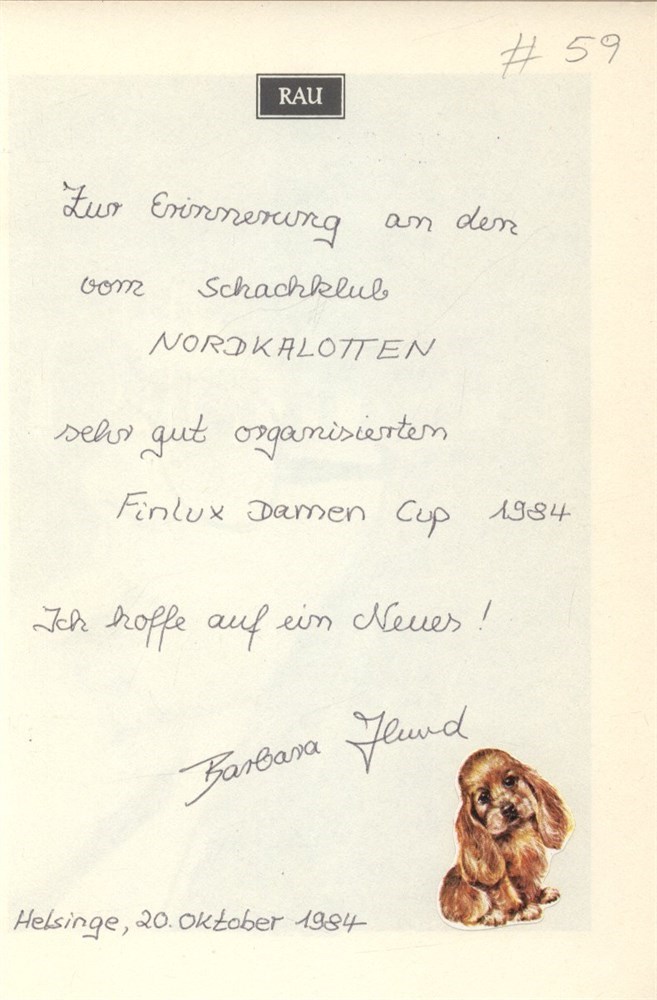 # 59
RAU
Zur Erinnerung an den
vom Schachklub
NORDKALOTTEN
sehr gut organisierten
Finlux Damen Cup 1984
Ich hoffe auf ein Neues!
Barbara Hund
Helsinge, 20. Oktober 1984